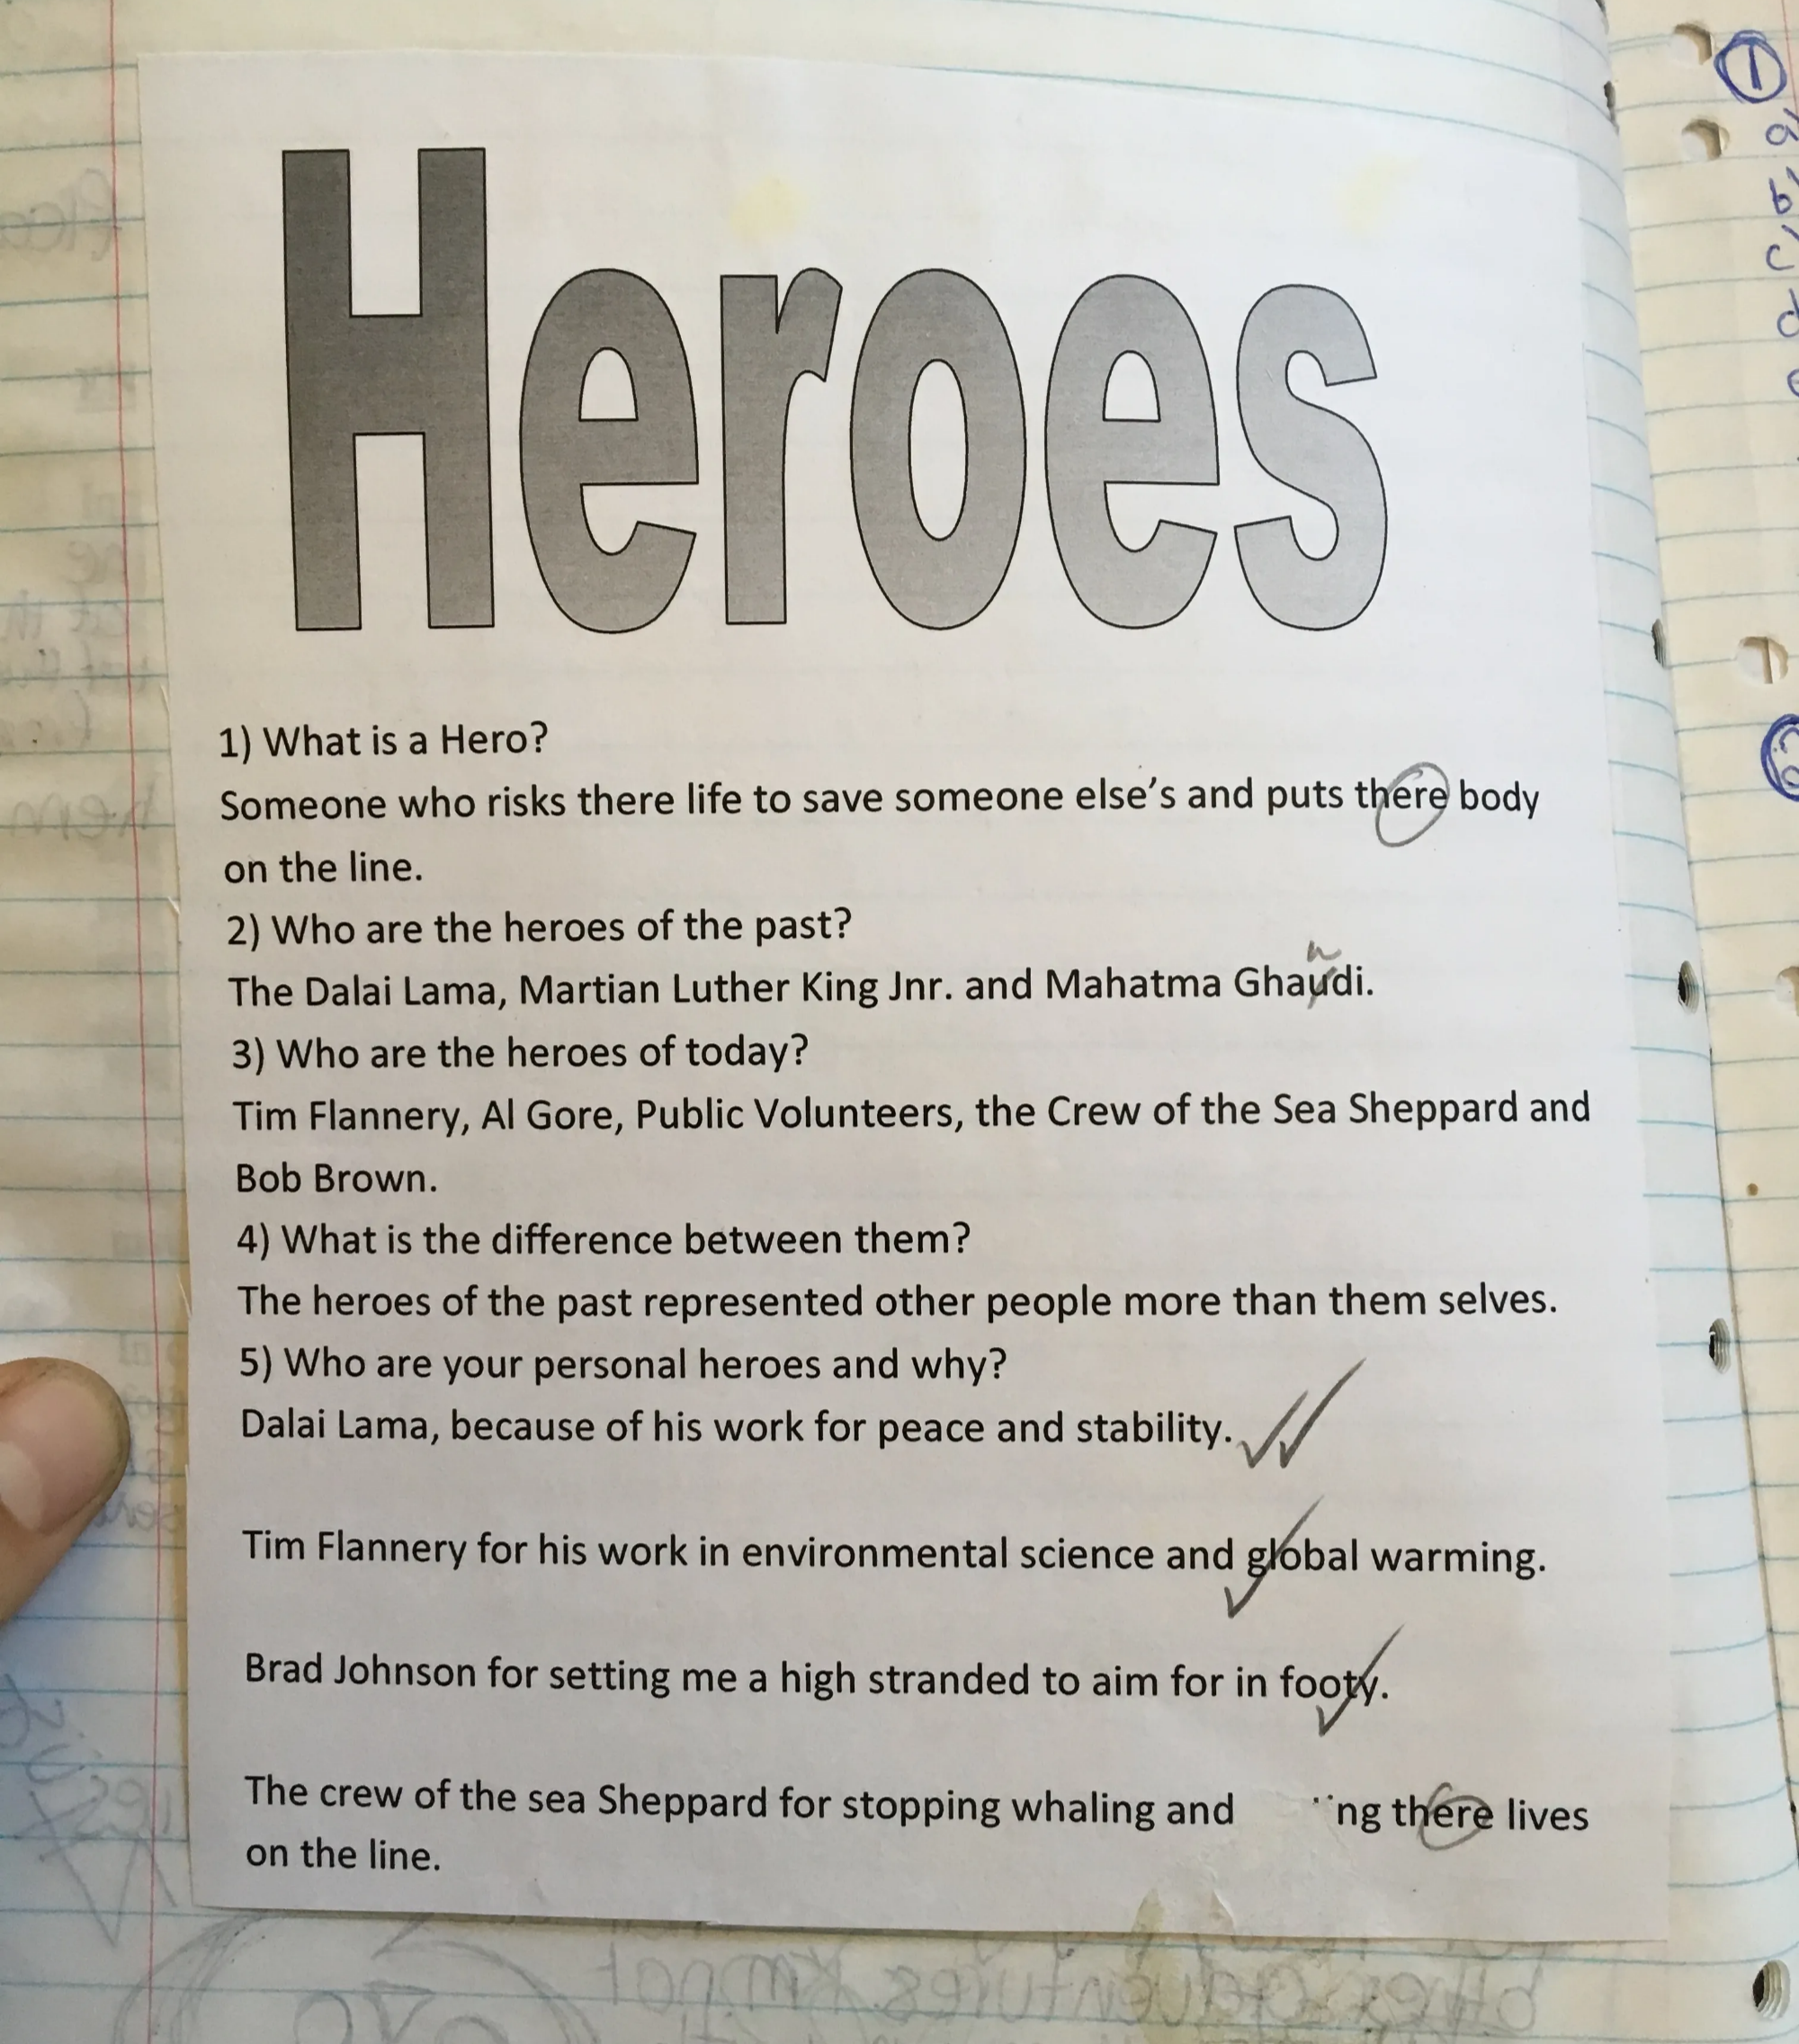 Heroes
1) What is a Hero?
Someone who risks there life to save someone else's and puts there body
on the line.
2) Who are the heroes of the past?
n
The Dalai Lama, Martian Luther King Jnr. and Mahatma Ghaudi.
3) Who are the heroes of today?
Tim Flannery, Al Gore, Public Volunteers, the Crew of the Sea Sheppard and
Bob Brown.
4) What is the difference between them?
The heroes of the past represented other people more than them selves.
5) Who are your personal heroes and why?
Dalai Lama, because of his work for peace and stability.
Tim Flannery for his work in environmental science and global warming.
Brad Johnson for setting me a high stranded to aim for in footy.
The crew of the sea Sheppard for stopping whaling and ng there lives
on the line.
1
a)
b)
c)
d
e